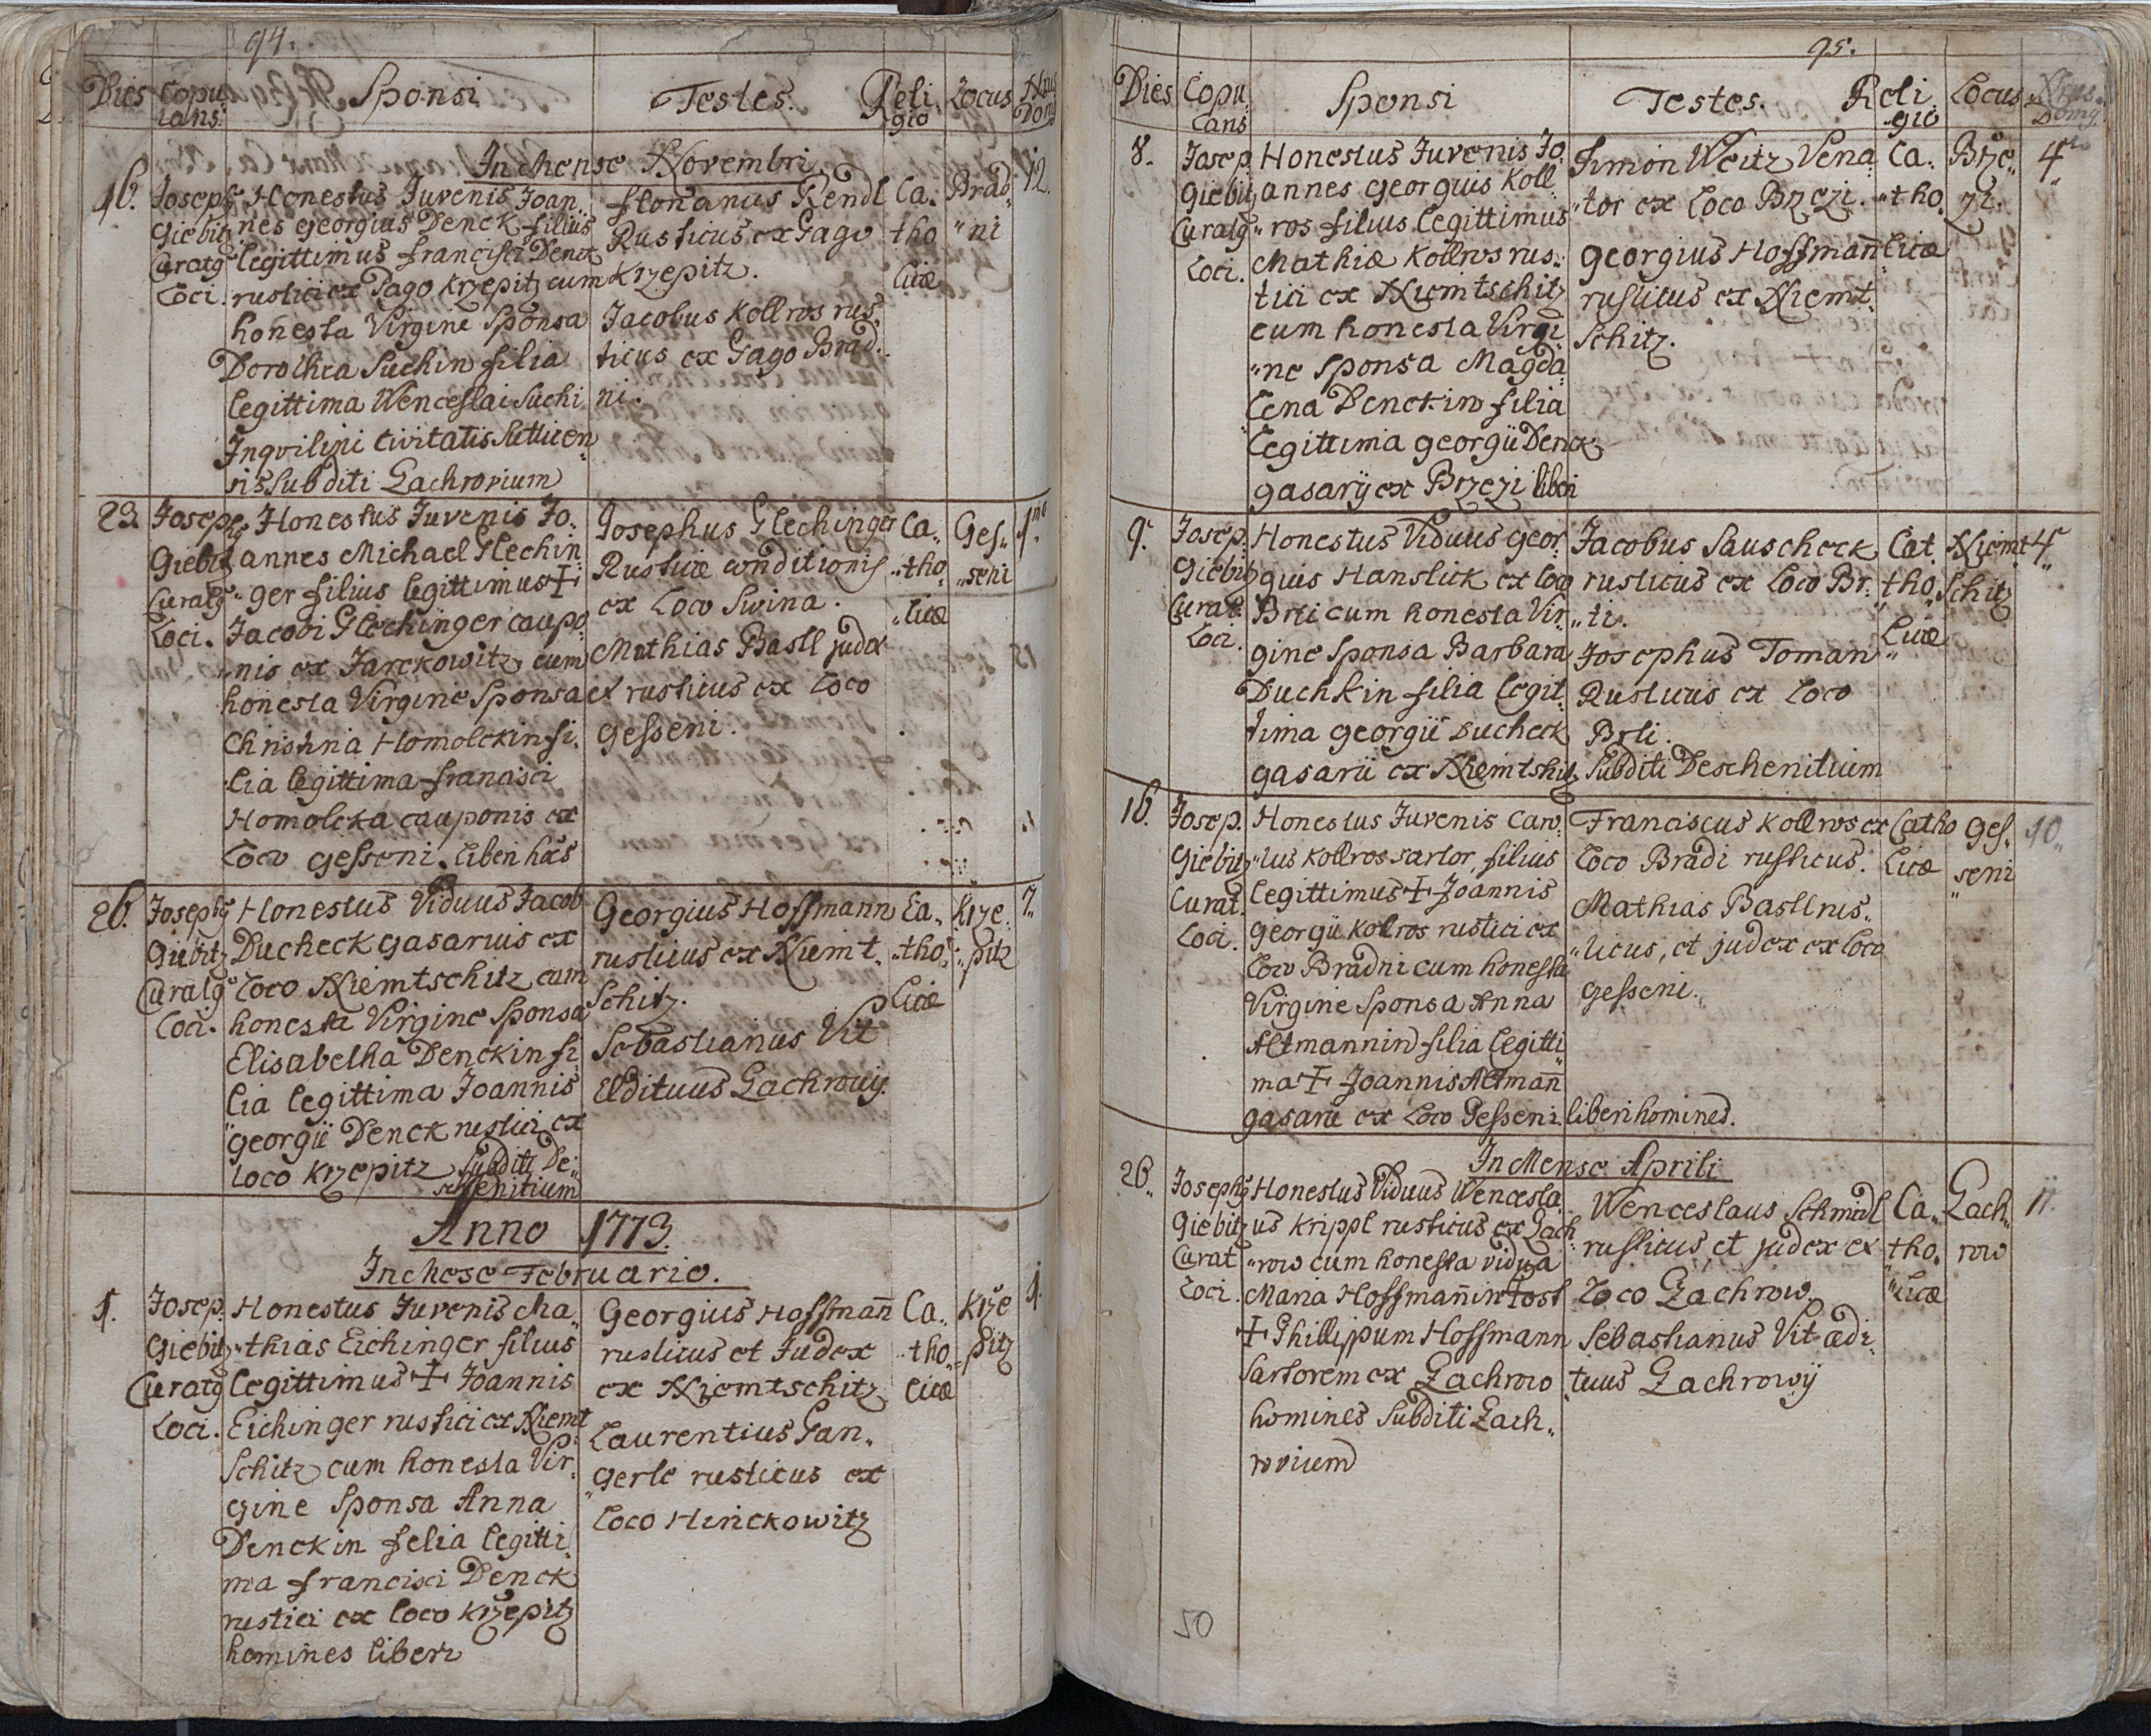 94.
Dies Copu lans Sponsi Testes. Reli gio Locus Nrus Dom
In Mense Novembri
16. Josephg Giebitz Curatg Loci.
Honestus Juvenis Joan„
nes Georgius Denck filius
legittimus francisci Denck
rustici ex Pago Krzepitz cum
honesta Virgine Sponsa
Dorothea Suchin filia
legittima Wenceslai Suchi
Inqvilini civitatis Sutticen„
sis Subditi Zachrovium
florianus Rendl
Rusticus ex Pago
Krzepitz.
Jacobus Kollros rus„
ticus ex Pago Brad„
ni.
Ca„
tho
licæ
Brad„
„ni
12.
23. Josephg Giebitz Curatg Loci.
Honestus Juvenis Jo„
annes Michael Plechin„
„ger filius legittimus +
Jacobi Plechinger caupo„
„nis ex Jarckowitz cum
honesta Virgine Sponsa
Christina Homolckin fi„
lia legittima francisci
Homolcka cauponis ex
Loco Gesseni. liberi hões
Josephus Plechinger
Rusticæ conditionis
ex Loco Swina.
Mathias Bastl judex
et rusticus ex Loco
Gesseni.
Ca„
„tho„
„licæ
Ges„
„seni
1mo
26. Josephg Giebitz Curatg Loci.
Honestus Viduus Jacob
Ducheck gasarius ex
Loco Niemtschitz cum
honesta Virgine Sponsa
Elisabetha Denckin fi„
lia legittima Joannis
Georgii Denck rustici ex
Loco Krzepitz Subditi De„
schenitium
Georgius Hoffmann
rusticus ex Niemt„
Schitz.
Sebastianus Vit
Ædituus Zachrovij.
Ca„
„tho„
licæ
Krze„
„pitz
7.
Anno 1773.
In Mese Februario.
1. Josep. Giebitz Curatg Loci.
Honestus Juvenis Ma„
„thias Eichinger filius
legittimus + Joannis
Eichinger rustici ex Niemt
Schitz cum honesta Vir„
gine Sponsa Anna
Denckin felia legitti„
ma francisci Denck
rustici ex loco Krzepitz
homines liberi
Georgius Hoffmañ
rusticus et Judex
ex Niemtschitz
Laurentius Pan„
„gerle rusticus ex
Loco Hinckowitz
Ca„
„tho„
licæ
Krze
„pitz
1.
95.
Dies Copu„ Cans Sponsi Testes. Reli„ gio Locus Nrus Domg
8. Josep. Giebitz Curatg Loci.
Honestus Juvenis Jo„
annes Georguis Koll„
„ros filius legittimus
Mathiæ Kollros rus„
tici ex Niemtschitz
cum honesta Virgi
„ne Sponsa Magda„
lena Denckin filia
legittima Georgii Denck
gasarij ex Brzezi liberi
Simon Weitz Vena„
„tor ex Loco Brzezi.
Georgius Hoffmañ
rusticus ex Niemt„
Schitz.
Ca„
„tho„
licæ
Brze„
zi.
4to
9. Josep. Giebitz Curat. Loci.
Honestus Viduus Geor„
guis Hanslick ex loco
Brti cum honesta Vir„
gine Sponsa Barbara
Duchkin filia legit„
tima Georgii Ducheck
gasarii ex Niemtshitz Subditi Deschenitium
Jacobus Sauscheck
rusticus ex Loco Br„
„ti.
Josephus Toman
Rusticus ex Loco
Brti.
Cat
tho„
licæ
Niemt
Schitz
4.
16. Josep. Giebitz Curat. Loci.
Honestus Juvenis Caro„
„lus Kollros sartor filius
legittimus + Joannis
Georgii Kollros rustici ex
Loco Bradni cum honesta
Virgine Sponsa Anna
Altmannin filia legitti„
ma + Joannis Altmañ
gasarii ex Loco Gesseni. liberi homines.
Franciscus Kollros ex
Loco Bradi rusticus.
Mathias Bastl rus„
„ticus, et judex ex loco
Gesseni.
Catho
licæ
Ges„
„seni
10.
In Mense Aprili
26. Josephg Giebitz Curat Loci.
Honestus Viduus Wencesla„
us Krippl rusticus ex Zach„
„row cum honesta vidua
Maria Hoffmañin post
+ Phillippum Hoffmann
Sartorem ex Zachrow
homines Subditi Zach„
rovium
Wenceslaus Schmidl
rusticus et judex ex
Loco Zachrow.
Sebastianus Vit ædi„
„tuus Zachrovij
Ca„
„tho„
„licæ
Zach„
row
11.
50